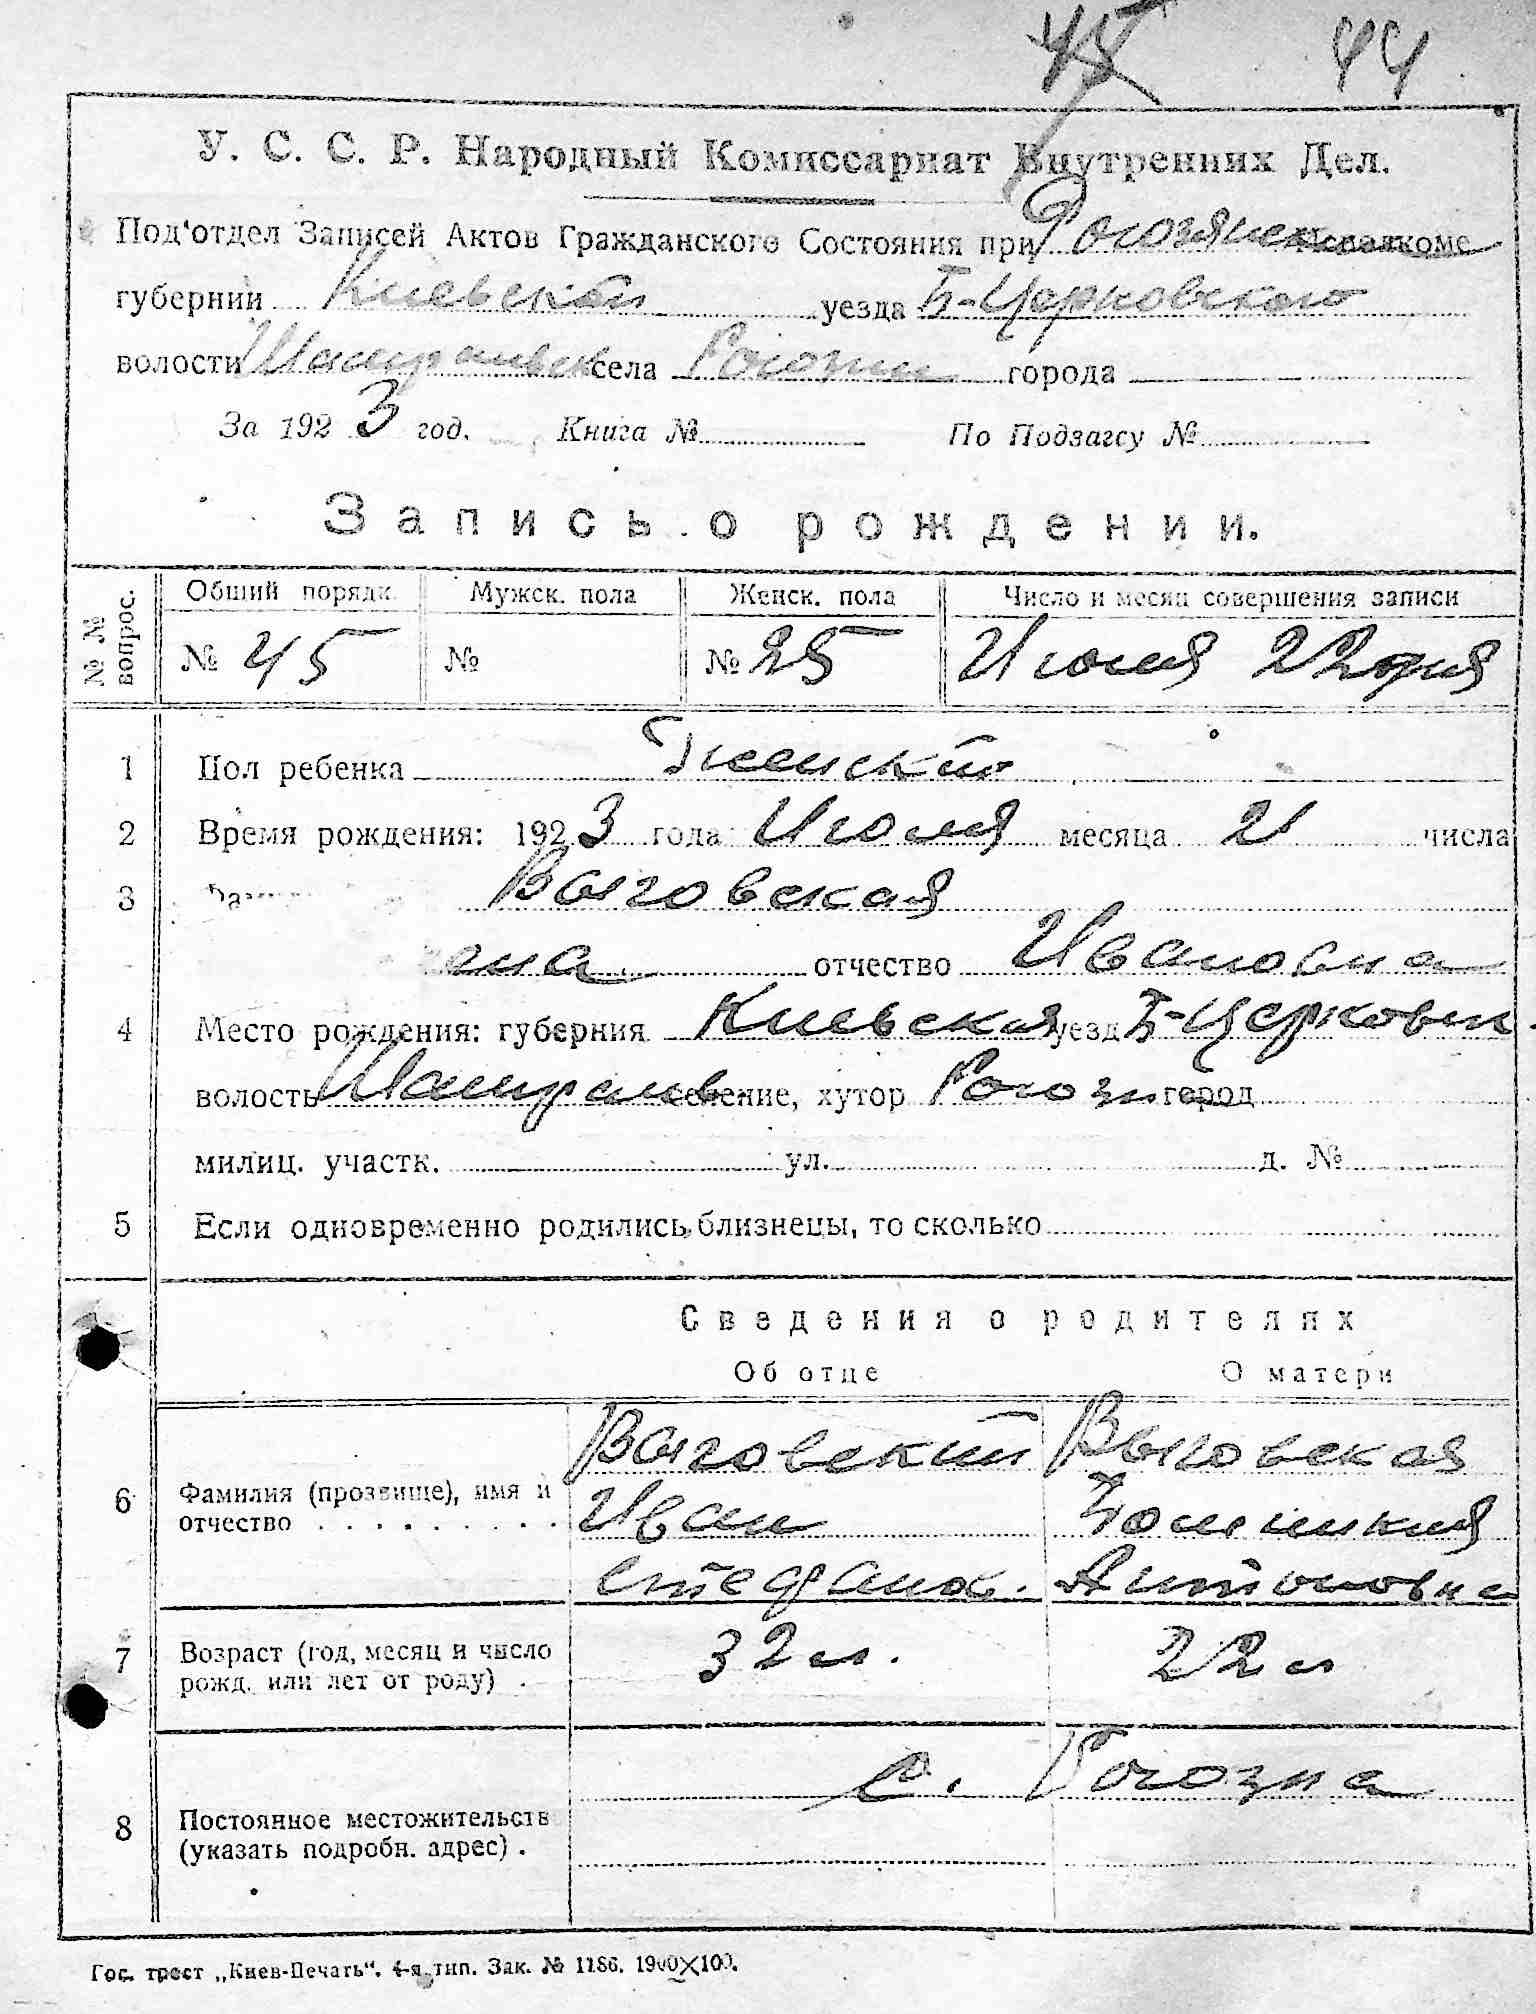 45 44
У. С. С. Р. Народный Комиссариат Внутренних Дел.
Под'отдел Записей Актов Гражданского Состояния при Рогознянск Исполкоме
губернии Киевской уезда Б-Церковского
волости села Рогозни города
За 1923 год. Книга № По Подзагсу №
Запись о рождении.
№ № вопрос. Общий порядк. Мужск. пола Женск. пола Число и месяц совершения записи
№ 45 № № 25 Июля 22 дня
1 Пол ребенка Женский
2 Время рождения: 1923 года Июля месяца 21 числа
3 Выговская
отчество Ивановна
4 Место рождения: губерния Киевская уезд Б-Церковск.
волость селение, хутор Рогозна город
милиц. участк. ул. д. №
5 Если одновременно родились близнецы, то сколько
Сведения о родителях
Об отце О матери
Выговский Выговская
6 Фамилия (прозвище), имя и Иван
отчество . . . . . . . . . Стефанов. Антоновна
7 Возраст (год, месяц и число 32 л. 22 л
рожд. или лет от роду) .
с. Рогозна
8 Постоянное местожительств
(указать подробн. адрес) .
Гос. трест „Киев-Печать“. 4-я тип. Зак. № 1186. 1900×100.